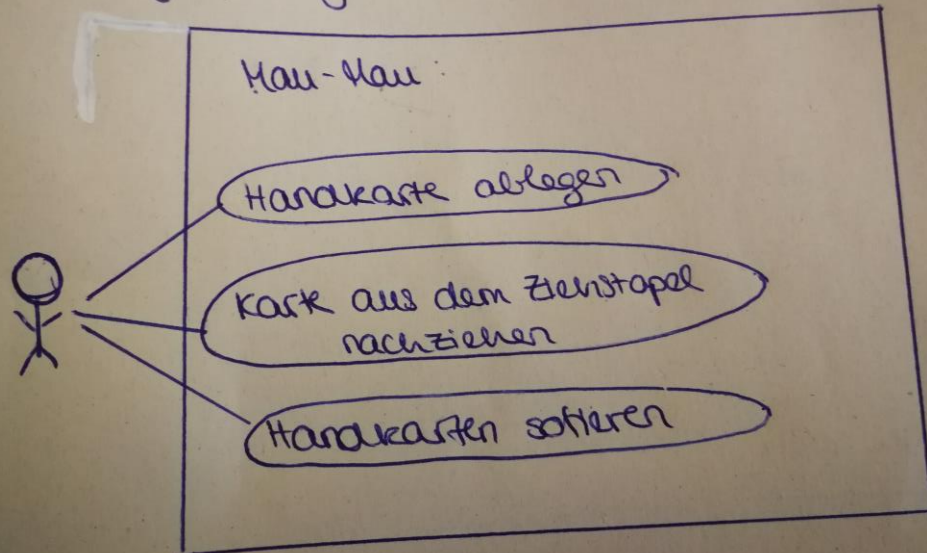 Mau-Mau:
Handkarte ablegen
Karte aus dem Ziehstapel
nachziehen
Handkarten sotieren